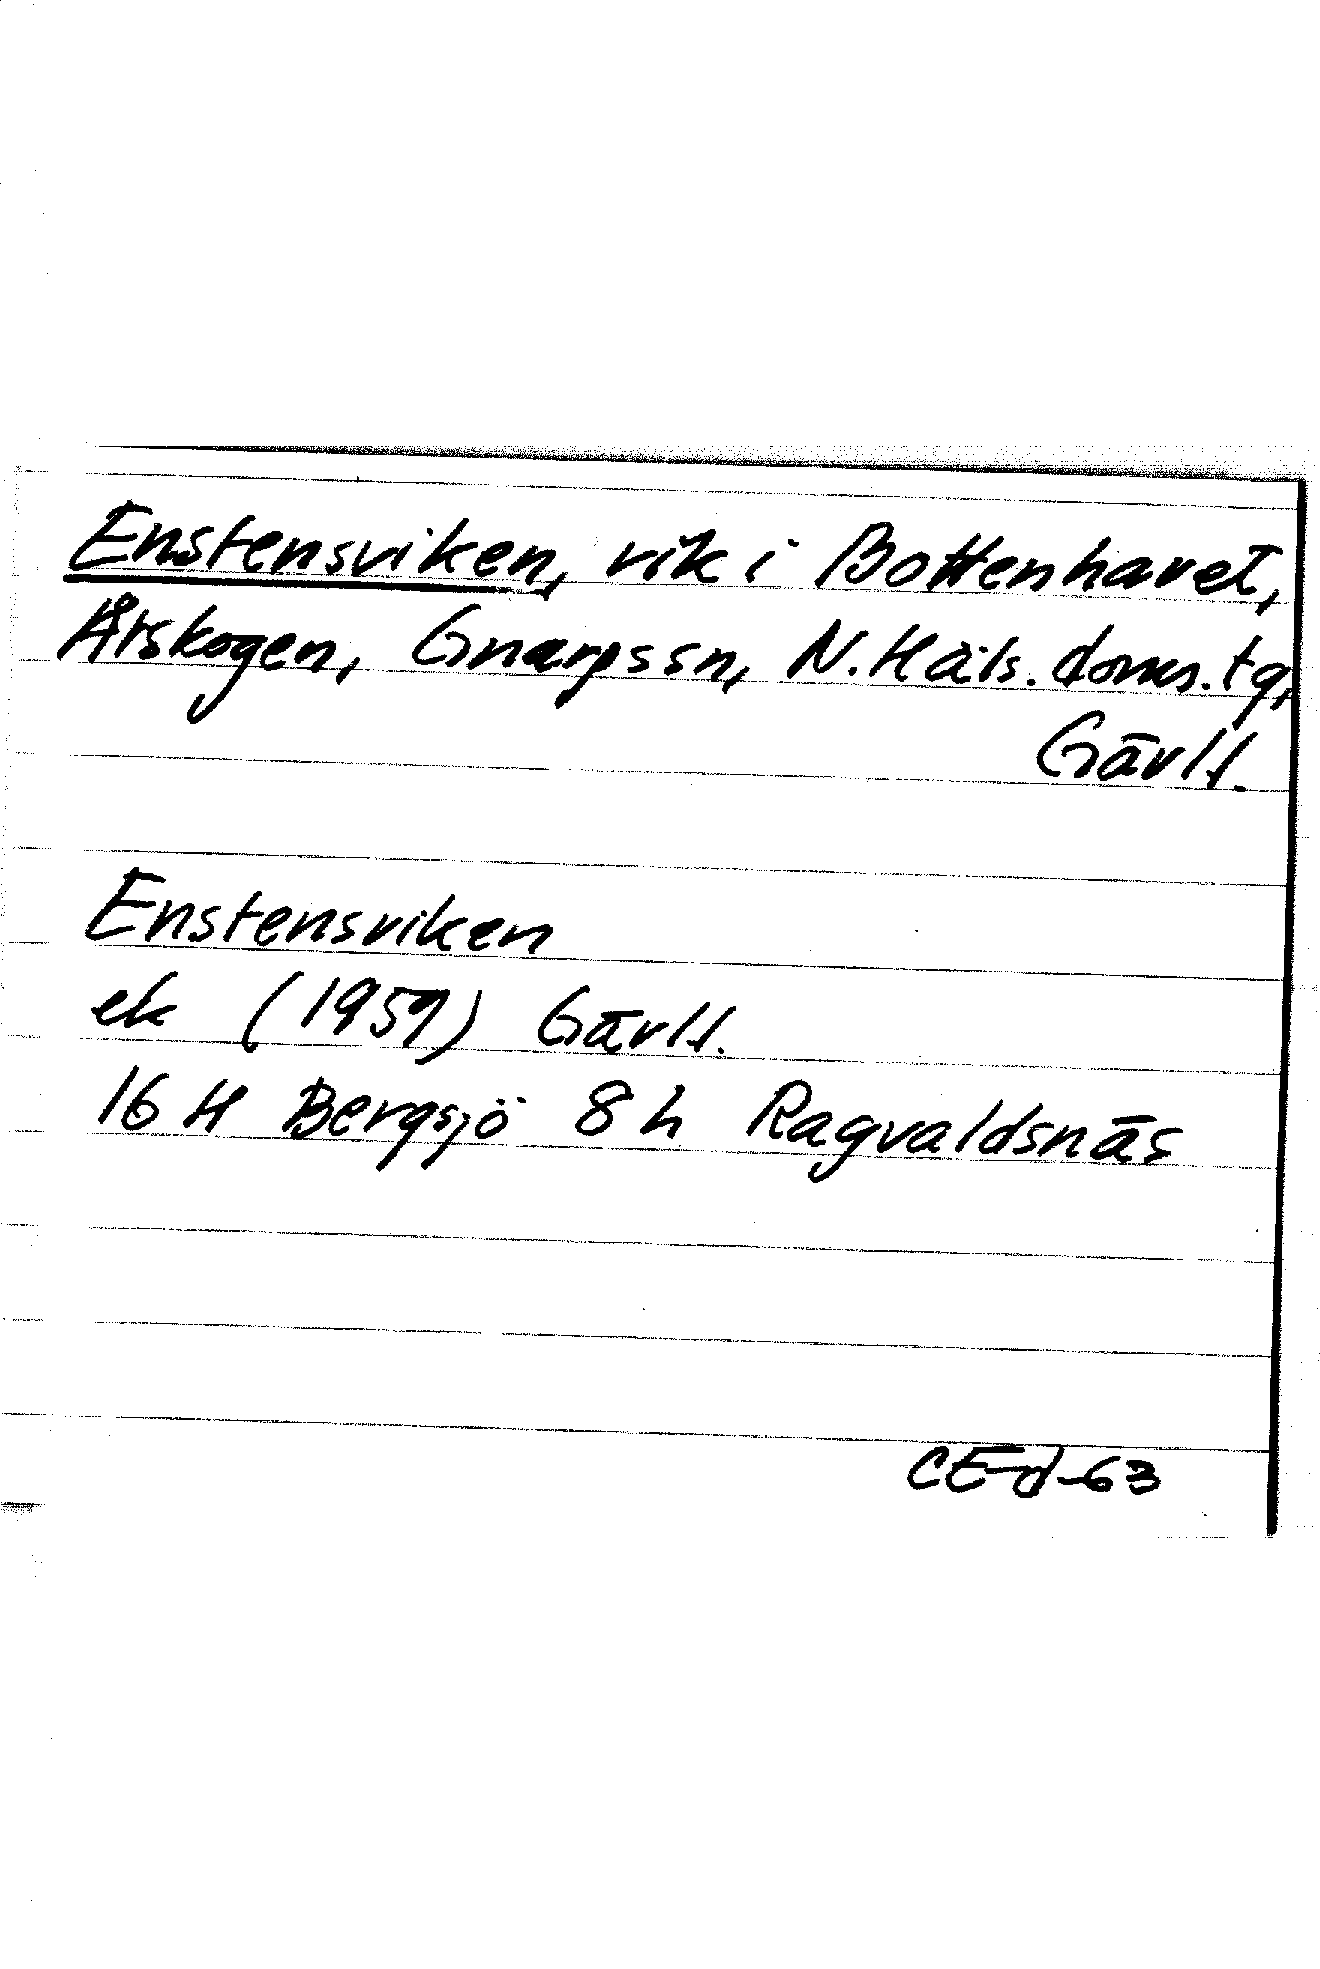 Enstensviken, vik i Bottenhavet,
Årskogen, Gnarpssn, N. Häls. doms. tg,
Gävl l.
Enstensviken
ek (1959) Gävl l.
16 H Bergsjö 8 h Ragvaldsnäs
CE-d-63